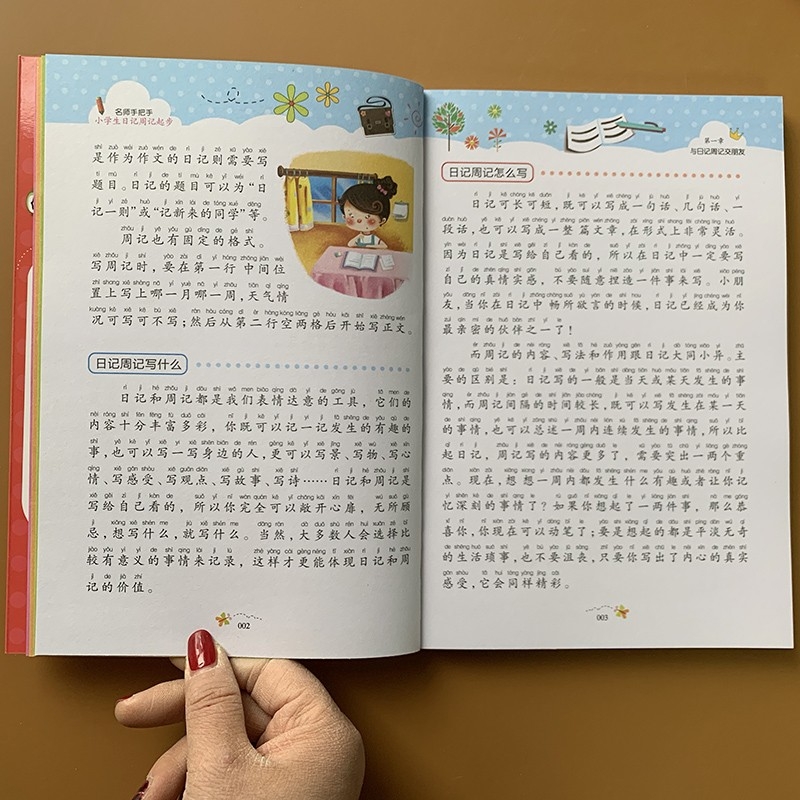 名师手把手
小学生日记周记起步
是作为作文的日记则需要写
题目。日记的题目可以为“日
记一则”或“记新来的同学”等。
周记也有固定的格式。
写周记时，要在第一行中间位
置上写上哪一月哪一周，天气情
况可写可不写；然后从第二行空两格后开始写正文。
日记周记写什么
日记和周记都是我们表情达意的工具，它们的
内容十分丰富多彩，你既可以记一记发生的有趣的
事，也可以写一写身边的人，更可以写景、写物、写心
情、写感受、写观点、写故事、写诗……日记和周记是
写给自己看的，所以你完全可以敞开心扉，无所顾
忌，想写什么，就写什么。当然，大多数人会选择比
较有意义的事情来记录，这样才更能体现日记和周
记的价值。
002
第一章
与日记周记交朋友
日记周记怎么写
日记可长可短，既可以写成一句话、几句话、一
段话，也可以写成一整篇文章，在形式上非常灵活。
因为日记是写给自己看的，所以在日记中一定要写
自己的真情实感，不要随意捏造一件事来写。小朋
友，当你在日记中畅所欲言的时候，日记已经成为你
最亲密的伙伴之一了！
而周记的内容、写法和作用跟日记大同小异。主
要的区别是：日记写的一般是当天或某天发生的事
情，而周记间隔的时间较长，既可以写发生在某一天
的事情，也可以总述一周内连续发生的事情，所以比
起日记，周记写的内容更多了，需要突出一两个重
点。现在，想想一周内都发生什么有趣或者让你记
忆深刻的事情了？如果你想起了一两件事，那么恭
喜你，你现在可以动笔了；要是想起的都是平淡无奇
的生活琐事，也不要沮丧，只要你写出了内心的真实
感受，它会同样精彩。
003